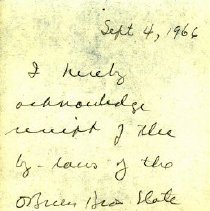 Sept 4, 1966
I hereby
acknowledge
receipt of the
by-laws of the
O'Brien Bros Slate